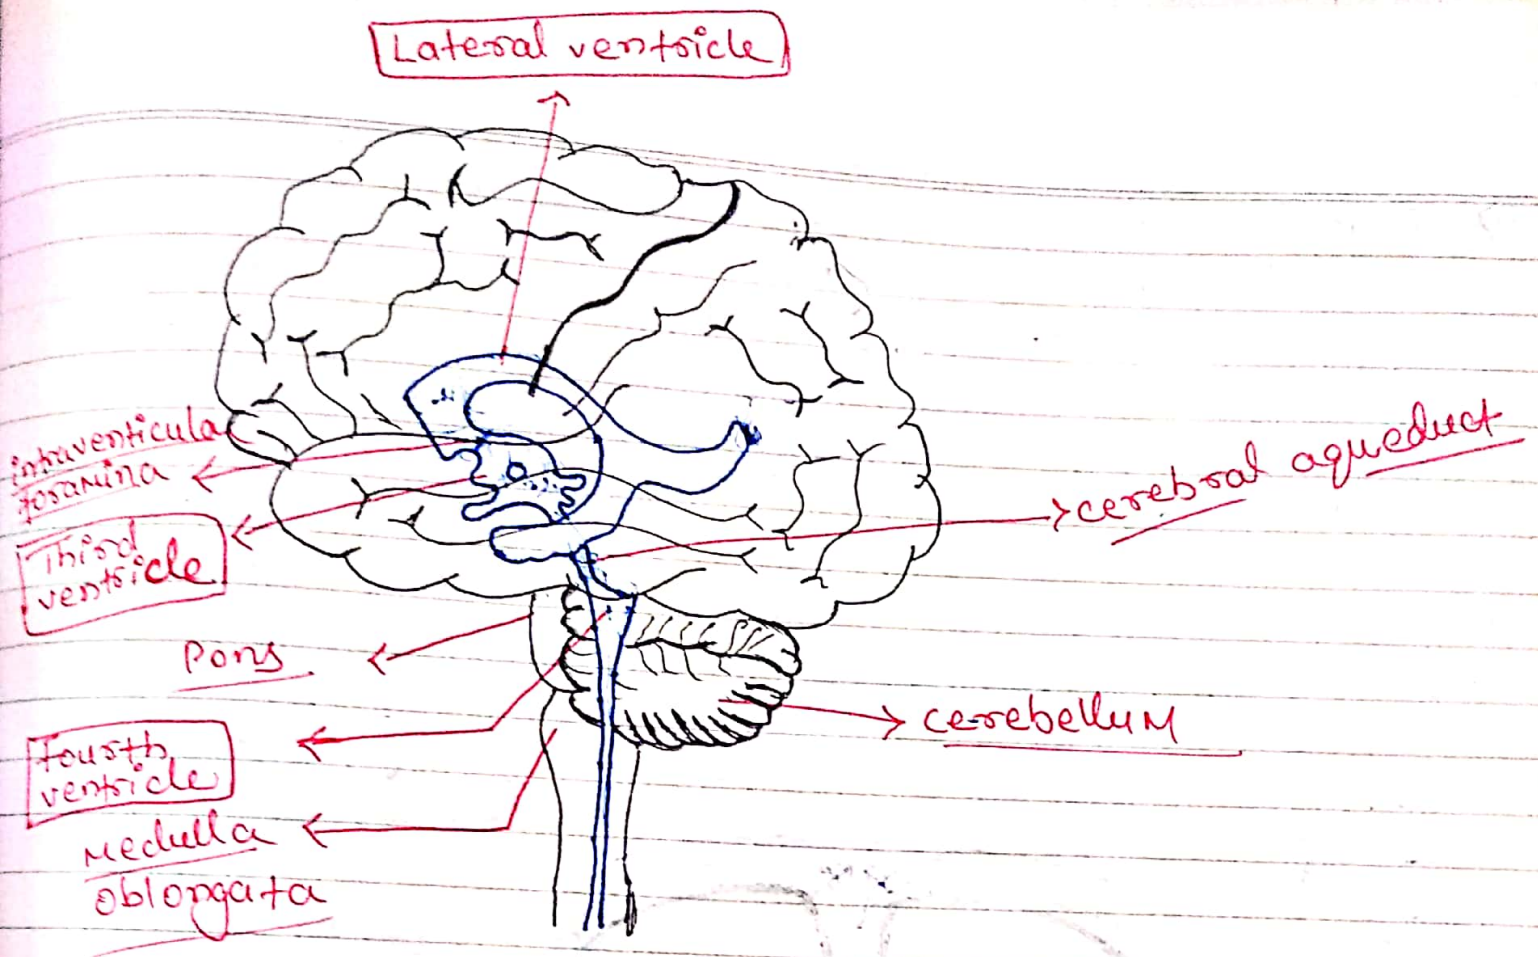 Lateral ventricle
intraventicula
foramina
Third
ventricle
cerebral aqueduct
Pons
cerebellum
fourth
ventricle
Medulla
oblongata